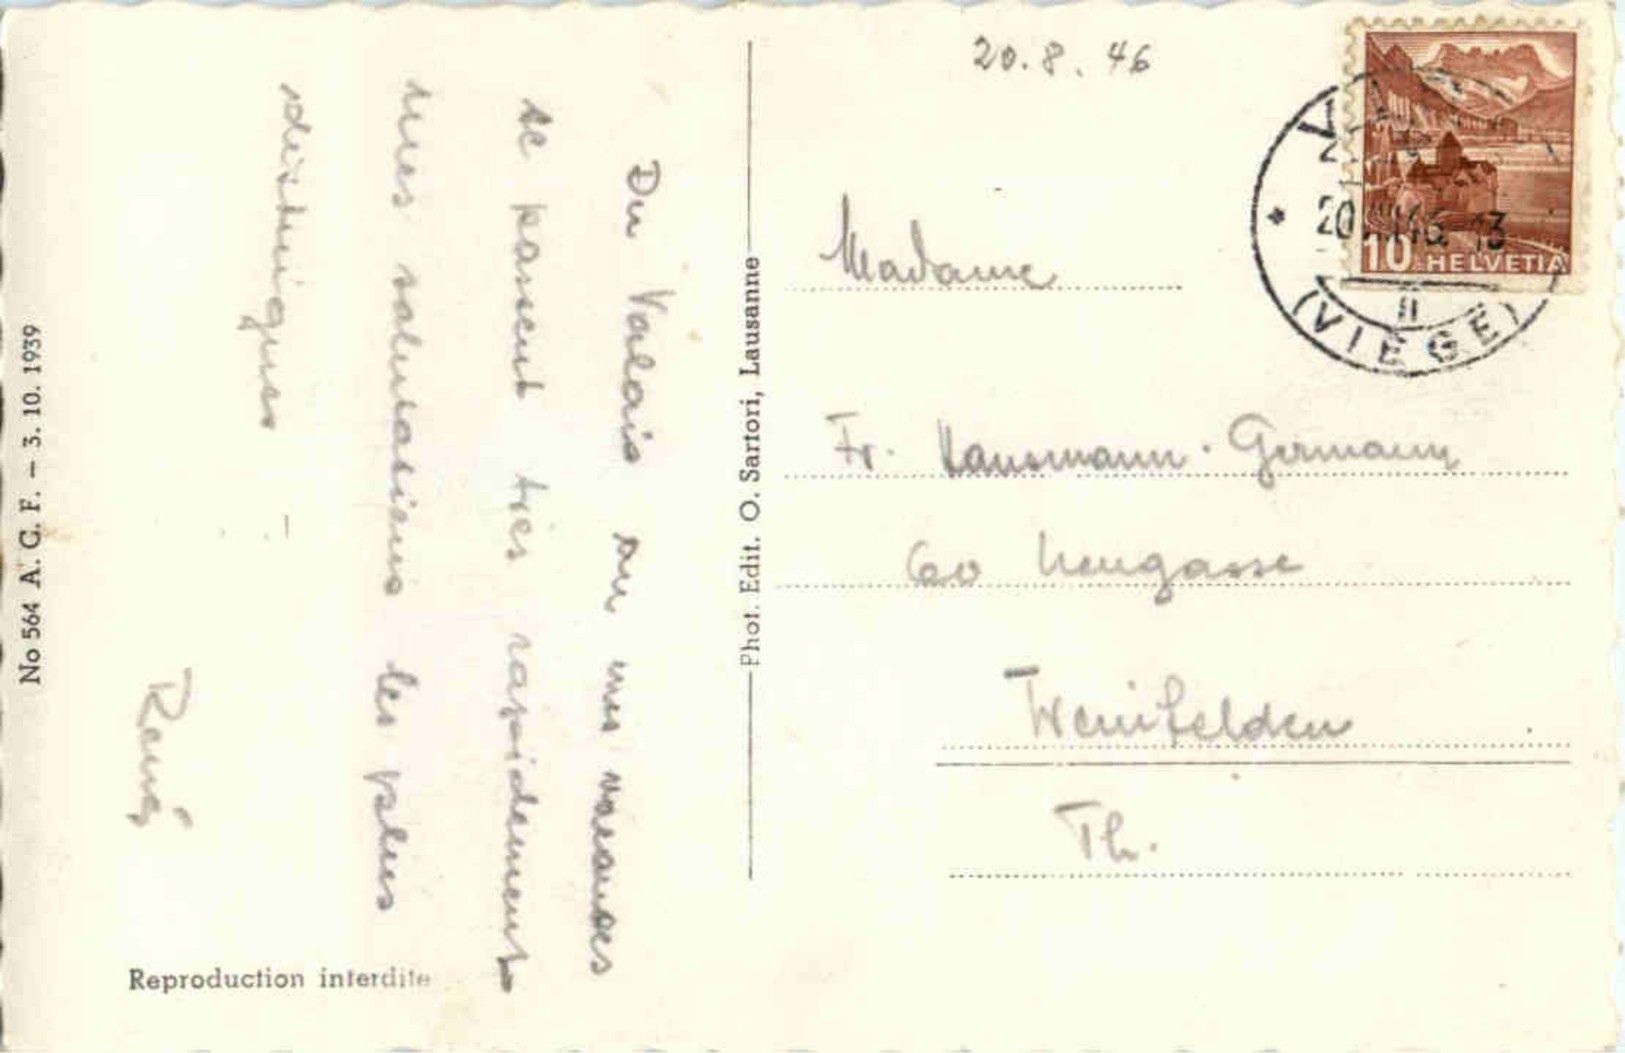 20.8.46
Du Valais où mes vacances
se passent très rapidement
mes salutations les plus
distingués
René
Madame
Fr. Hausmann-Germann
60 Neugasse
Weinfelden
Th.
10 HELVETIA
(VIEGE)
Phot. Edit. O. Sartori, Lausanne
No 564 A. C. F. – 3. 10. 1939
Reproduction interdite